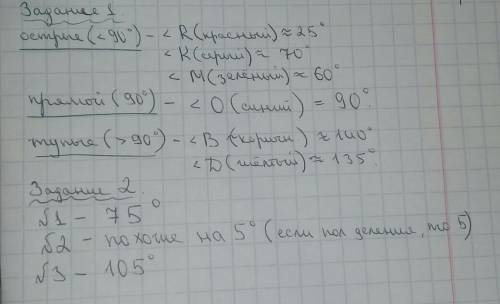 Задание 1
острые (<90°) - <R (красный) ≈ 25°
<К (серый) ≈ 70°
<М (зелёный) ≈ 60°
прямой (90°) - <О (синий) = 90°.
тупые (>90°) - <В (коричн) ≈ 140°
<D (жёлтый) ≈ 135°.
Задание 2.
№1 - 75°
№2 - похоже на 5° (если пол деления, то 5)
№3 - 105°